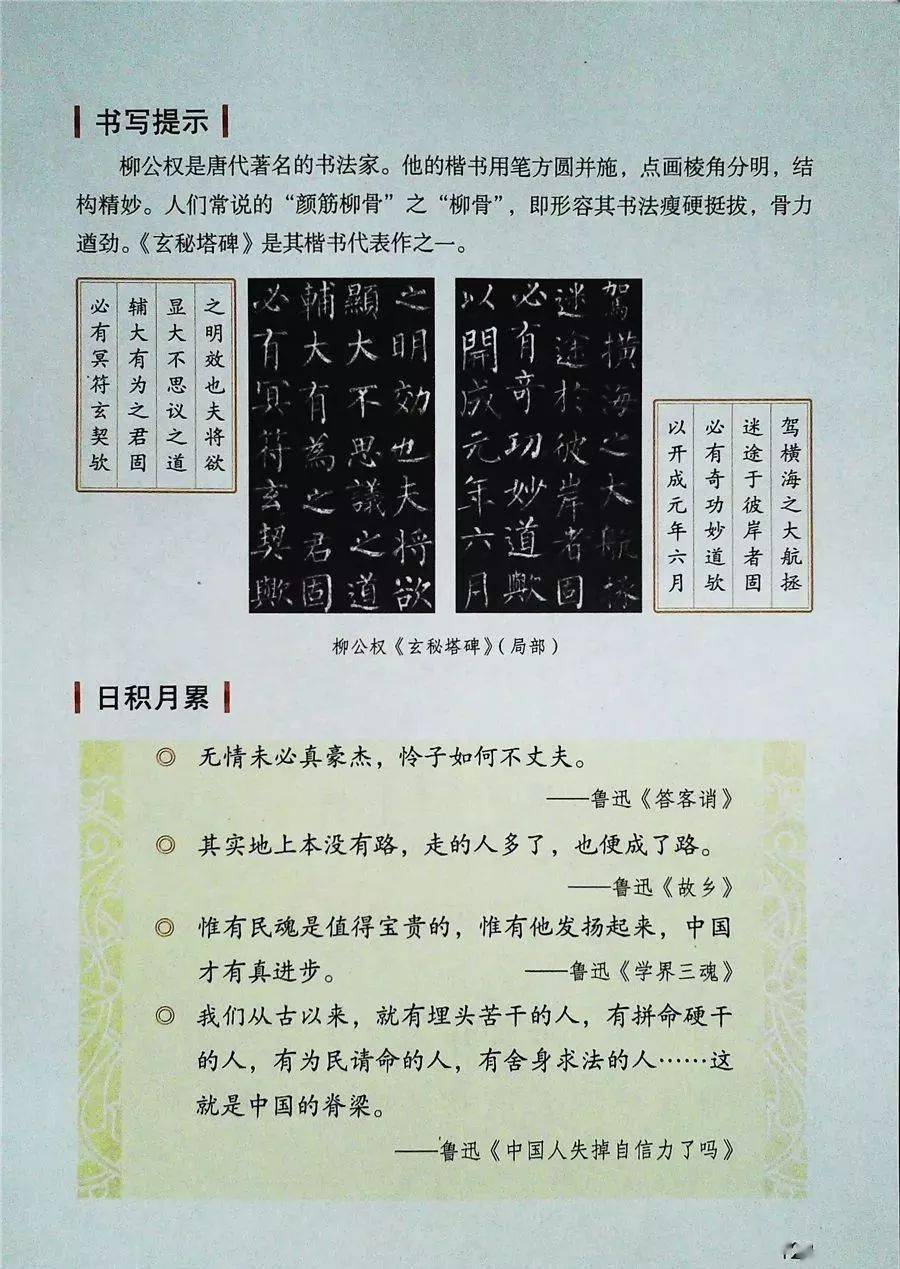 书写提示
柳公权是唐代著名的书法家。他的楷书用笔方圆并施，点画棱角分明，结
构精妙。人们常说的“颜筋柳骨”之“柳骨”，即形容其书法瘦硬挺拔，骨力
遒劲。《玄秘塔碑》是其楷书代表作之一。
之明效也夫将欲
显大不思议之道
辅大有为之君固
必有冥符玄契欤
之明効也夫將欲
顯大不思議之道
輔大有為之君固
必有冥符玄契歟
駕橫海之大航拯
迷途於彼岸者固
必有奇功妙道歟
以開成元年六月
驾横海之大航拯
迷途于彼岸者固
必有奇功妙道欤
以开成元年六月
柳公权《玄秘塔碑》（局部）
日积月累
◎ 无情未必真豪杰，怜子如何不丈夫。
——鲁迅《答客诮》
◎ 其实地上本没有路，走的人多了，也便成了路。
——鲁迅《故乡》
◎ 惟有民魂是值得宝贵的，惟有他发扬起来，中国
才有真进步。 ——鲁迅《学界三魂》
◎ 我们从古以来，就有埋头苦干的人，有拼命硬干
的人，有为民请命的人，有舍身求法的人……这
就是中国的脊梁。
——鲁迅《中国人失掉自信力了吗》